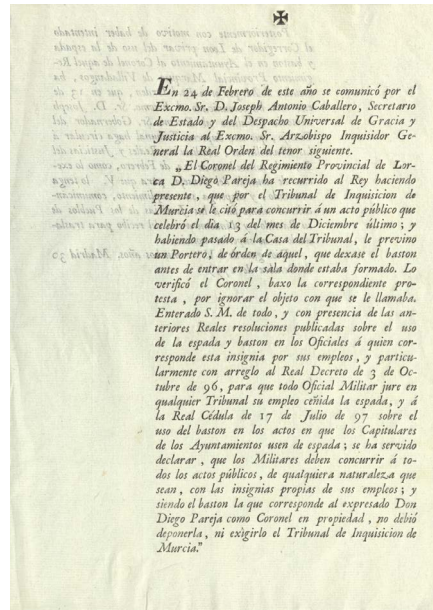 En 24 de Febrero de este año se comunicó por el
Excmo. Sr. D. Joseph Antonio Caballero, Secretario
de Estado y del Despacho Universal de Gracia y
Justicia al Excmo. Sr. Arzobispo Inquisidor Ge-
neral la Real Orden del tenor siguiente.
„El Coronel del Regimiento Provincial de Lor-
ca D. Diego Pareja ha recurrido al Rey haciendo
presente, que por el Tribunal de Inquisicion de
Murcia se le citó para concurrir á un acto público que
celebró el dia 13 del mes de Diciembre último; y
habiendo pasado á la Casa del Tribunal, le previno
un Portero, de órden de aquel, que dexase el baston
antes de entrar en la sala donde estaba formado. Lo
verificó el Coronel, baxo la correspondiente pro-
testa, por ignorar el objeto con que se le llamaba.
Enterado S. M. de todo, y con presencia de las an-
teriores Reales resoluciones publicadas sobre el uso
de la espada y baston en los Oficiales á quien cor-
responde esta insignia por sus empleos, y particu-
larmente con arreglo al Real Decreto de 3 de Oc-
tubre de 96, para que todo Oficial Militar jure en
qualquier Tribunal su empleo ceñida la espada, y á
la Real Cédula de 17 de Julio de 97 sobre el
uso del baston en los actos en que los Capitulares
de los Ayuntamientos usen de espada; se ha servido
declarar, que los Militares deben concurrir á to-
dos los actos públicos, de qualquiera naturaleza que
sean, con las insignias propias de sus empleos; y
siendo el baston la que corresponde al expresado Don
Diego Pareja como Coronel en propiedad, no debió
deponerla, ni exigirlo el Tribunal de Inquisicion de
Murcia."